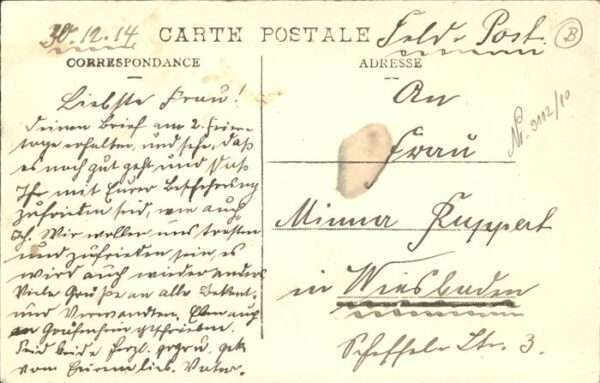 30.12.14 CARTE POSTALE Feld-Post. B
CORRESPONDANCE ADRESSE
Liebste Frau!
Deinen Brief am 2. Feier-
tage erhalten, und sehe, daß
es noch gut geht und daß
Ihr mit Eurer Bescheerung
zufrieden seid, wie auch
ich. Wir wollen uns trösten
und zufrieden sein, es
wird auch wieder anders
Viele Grüße an alle Bekannt.
und Verwandten. Eben auch
an geschrieben.
Seid beide herzl. gegrü. gek.
von Eurem lieb. Vater.
An
Frau
Minna Kuppert
in Wiesbaden
Scheffel Str. 3.
Nr. 9112/10